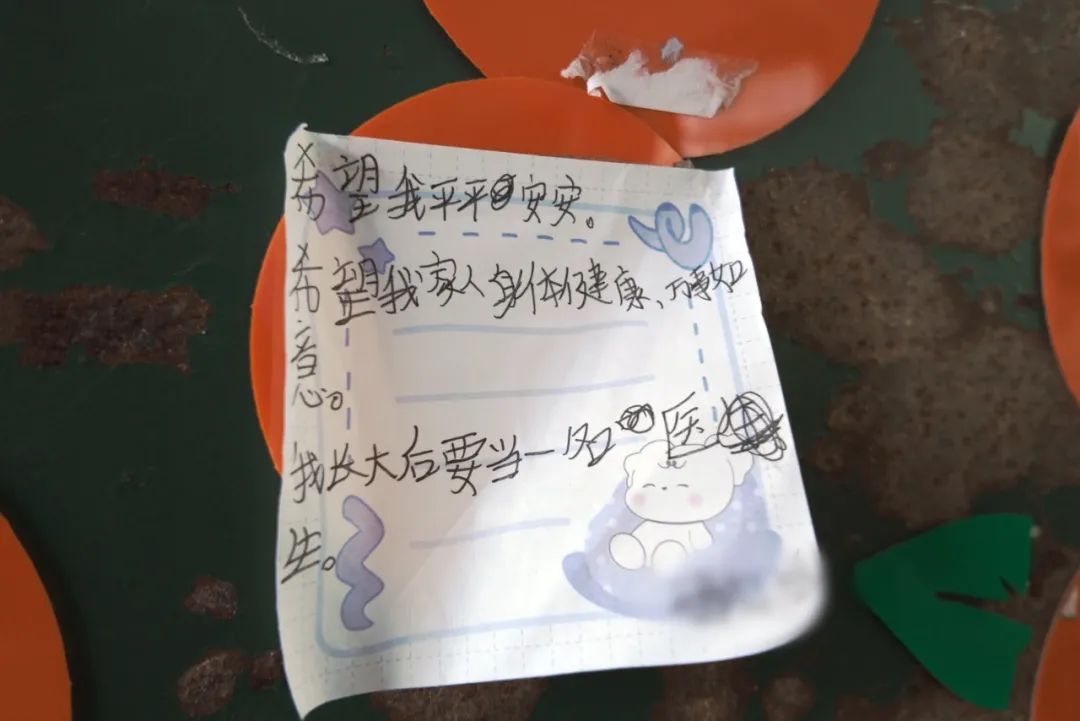 希望我平平安安。
希望我家人身体健康、万事如
意心。
我长大后要当一名医
生。